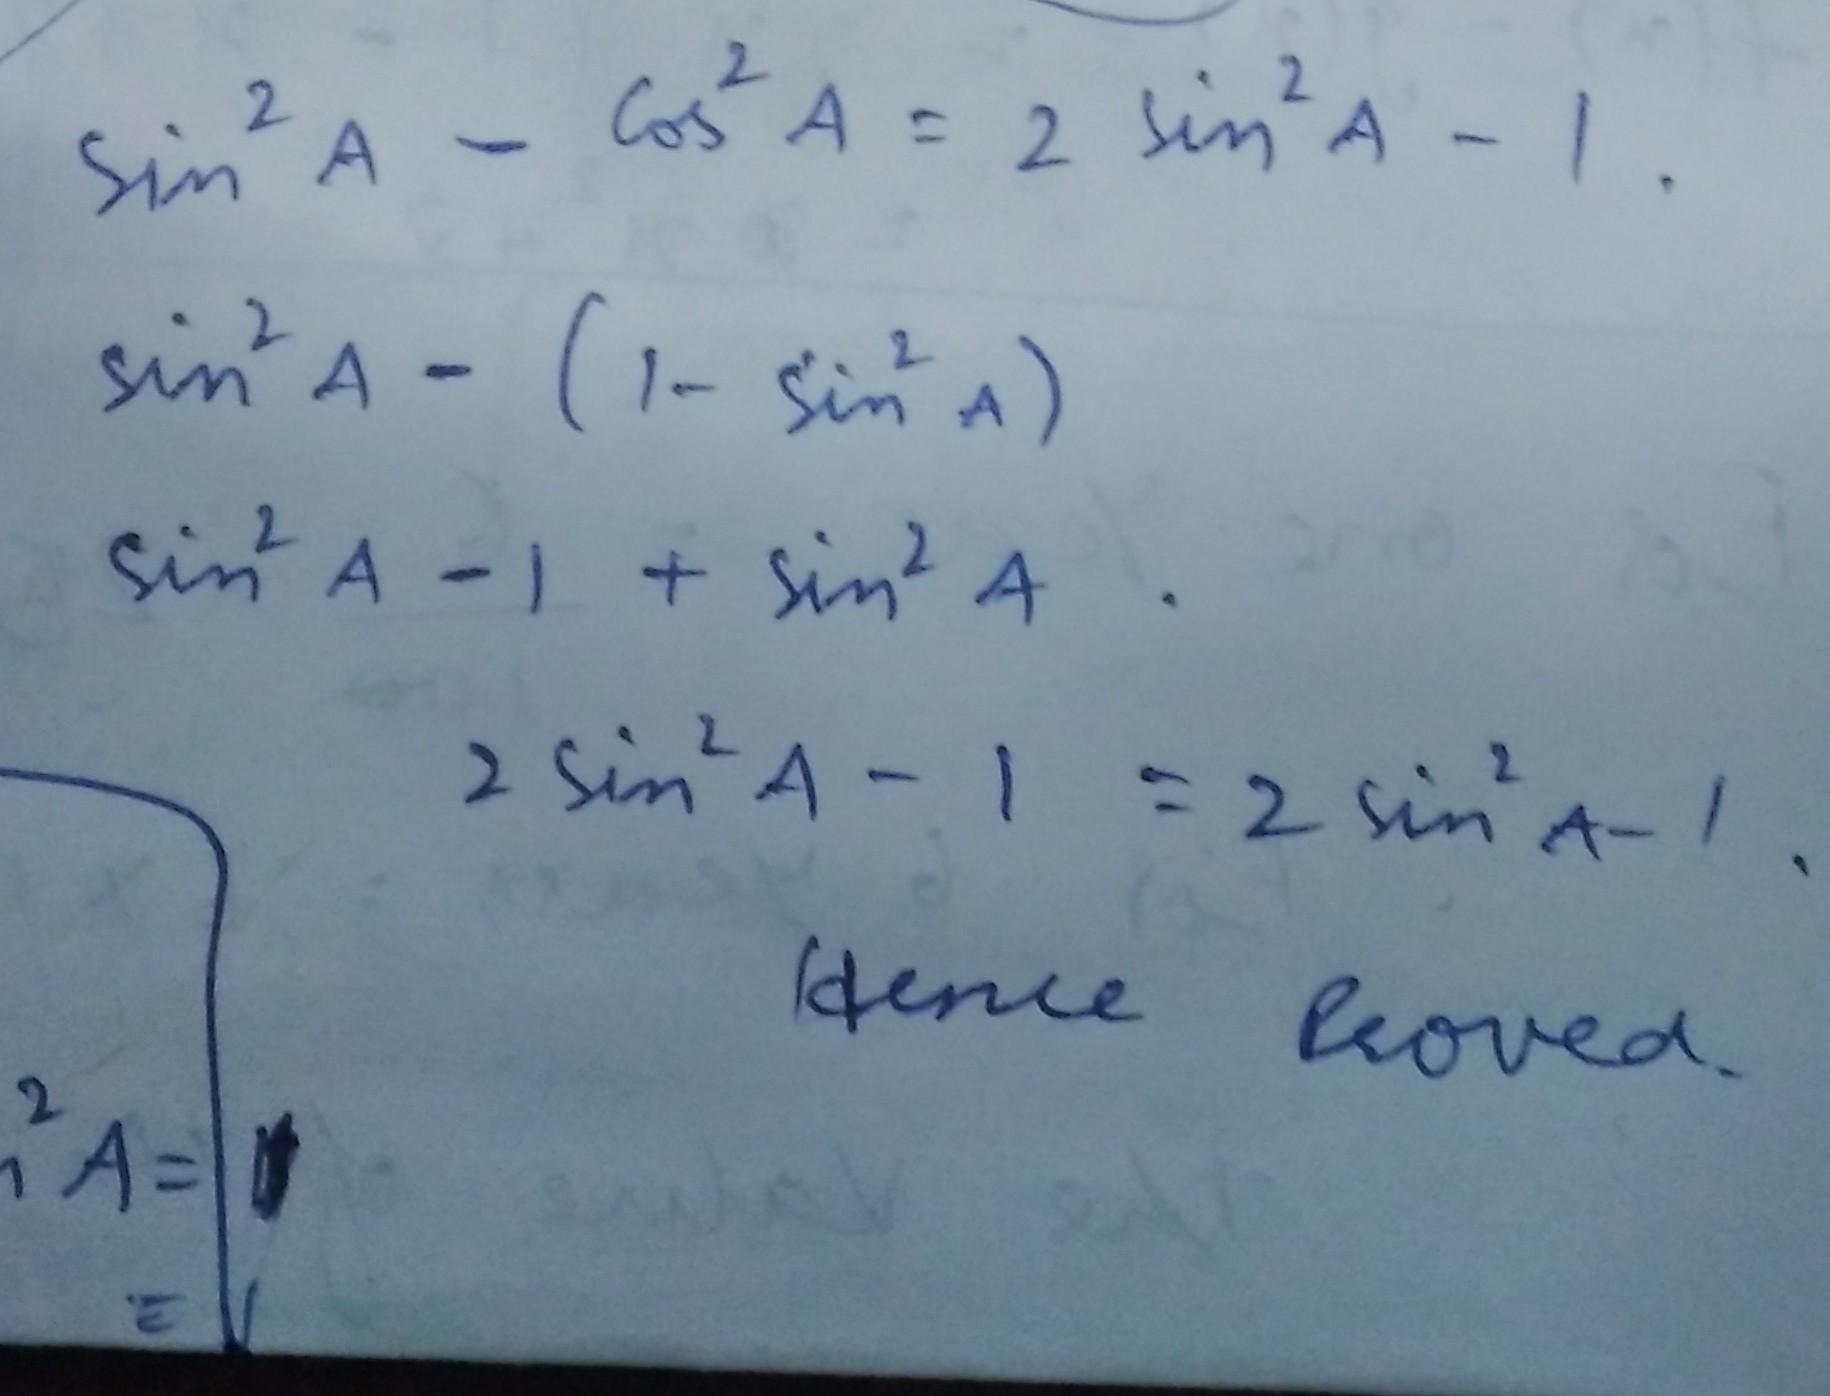 sin² A - Cos² A = 2 sin² A - 1.
sin² A - (1 - sin² A)
sin² A - 1 + sin² A .
2 sin² A - 1 = 2 sin² A - 1.
Hence Proved.
² A =
=